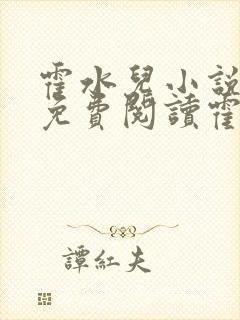 霍水兒小說
免費閱讀霍
譚紅夫